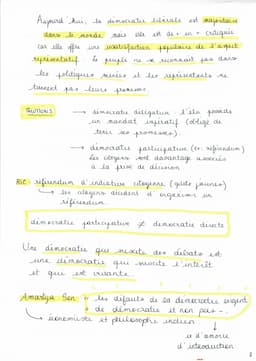 Aujourd'hui, la démocratie libérale est majoritaire
dans le monde mais elle est de + en + critiquée
car elle offre une insatisfaction populaire de l'aspect
représentatif. Le peuple ne se reconnait pas dans
les politiques menées et les représentants ne
tiennent pas leurs promesses.
SOLUTIONS → démocratie délégation : l'élu possède
un mandat impératif (obligé de
tenir ses promesses).
→ démocratie participative (ex: référendum)
les citoyens sont davantage associés
à la prise de décision.
RIC : référendum d'initiative citoyenne (gilets jaunes)
↳ les citoyens décident d'organiser un
référendum.
démocratie participative ≠ démocratie directe
Une démocratie qui suscite des débats est
une démocratie qui suscite l'intérêt
et qui est vivante.
Amartya Sen : « les défauts de la démocratie exigent
+ de démocratie et non pas - ».
↳ économiste et philosophe indien.